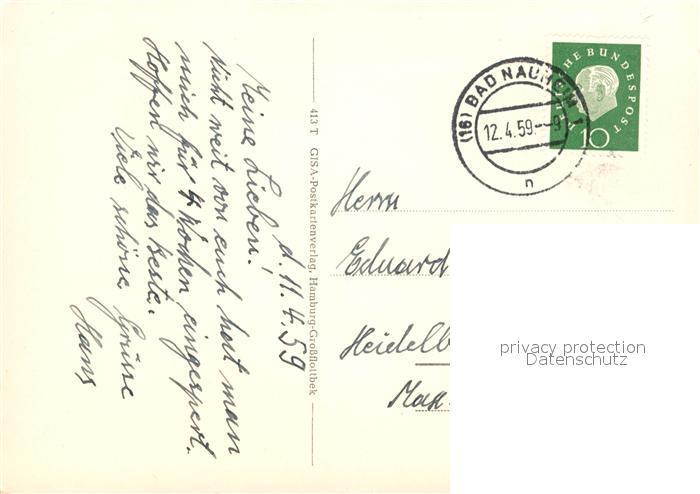 d. 11.4.59
Meine Lieben!
Nicht weit von euch hat man
mich für 4 Wochen eingesperrt.
Hoffen wir das beste.
Viele schöne Grüsse
Hans
413 T GISA-Postkartenverlag, Hamburg-Großflottbek
(16) BAD NAUHEIM 1
12.4.59.--9
n
HE BUNDESPOST
10
Herrn
Eduard
Heidelb
Max-
privacy protection
Datenschutz